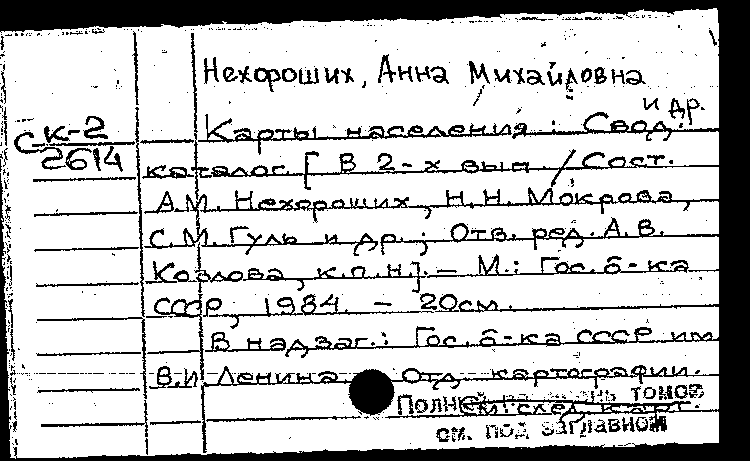 Нехороших, Анна Михайловна
и др.
СК-2
2614
Карты населения: Свод.
каталог. [В 2-х вып. / Сост.
А.М. Нехороших, Н.Н. Мокрова,
С.М. Гуль и др.; Отв. ред. А.В.
Козлова, к.п.н]. — М.: Гос. б-ка
СССР, 1984. — 20см.
В надзаг.: Гос. б-ка СССР им
В.И Ленина. Отд. картографии.
томов
см. след. карт.
см. под заглавной